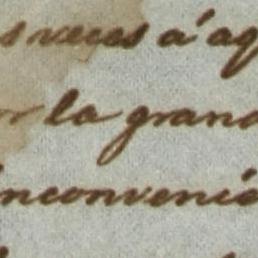 s veces á aq
or la grand
inconvenie